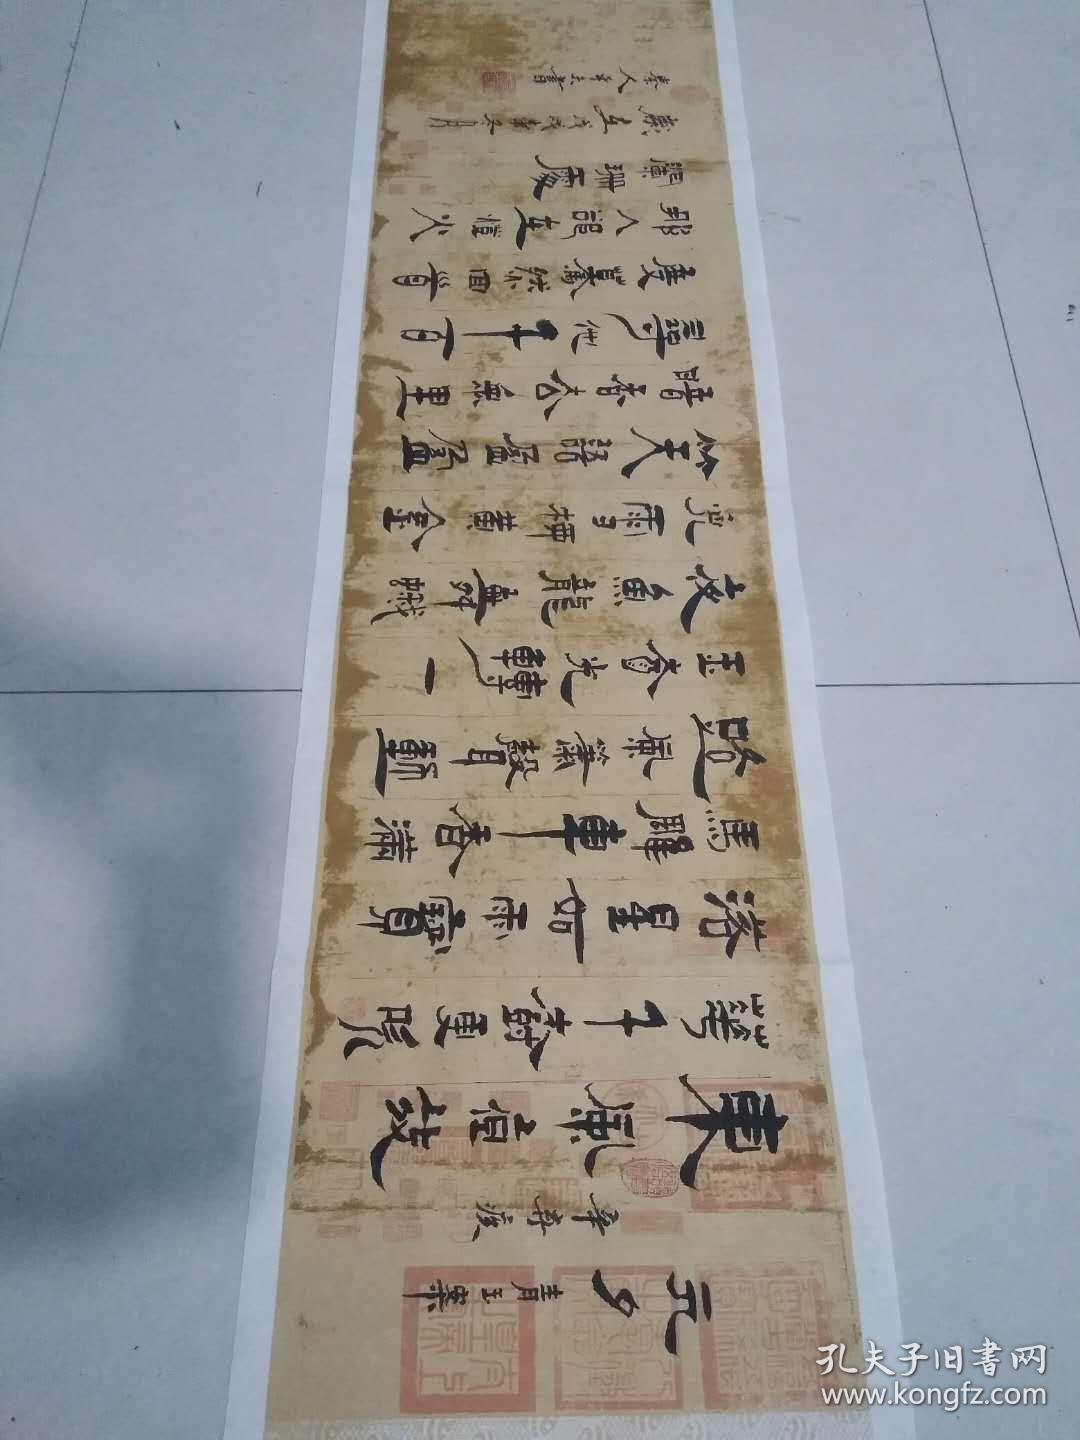 元夕 青玉案
辛棄疾
東風夜放
花千樹更吹
落星如雨寶
馬雕車香滿
路風簫聲動
玉壺光轉一
夜魚龍舞蛾
兒雪柳黃金
笑語盈盈
暗香去無里
尋他千百
度驀然回首
那人卻在燈火
闌珊處
歲在戊戌年冬月
孔夫子旧书网
www.kongfz.com